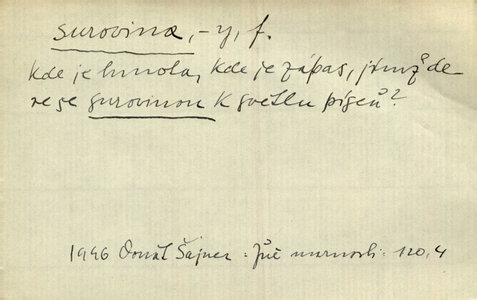 surovina, -y, f.
kde je hmota, kde je zápas, jímž de-
re se surovinou k světlu píseň?
1946 Donát Šajner: Zůč marnosti: 120,4